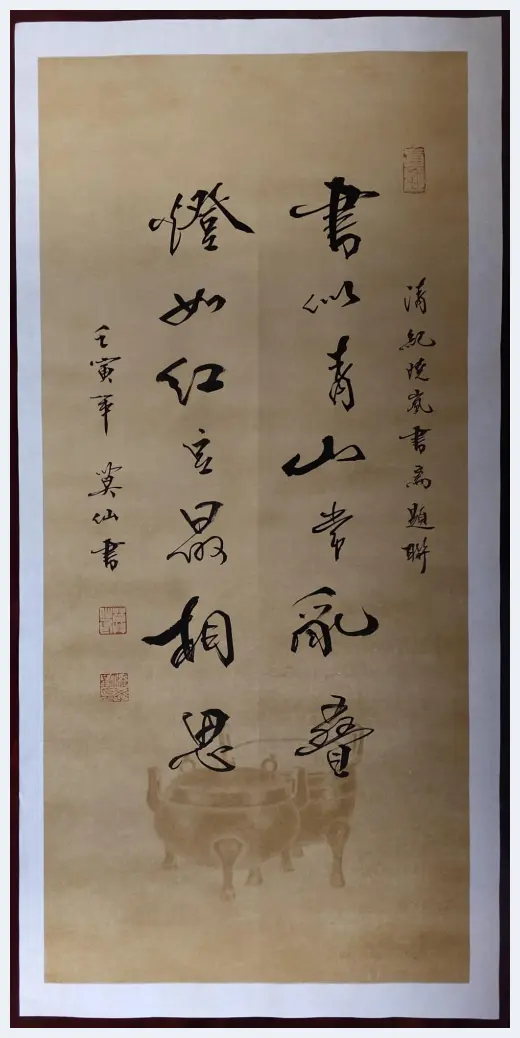 清紀晓嵐书斋題聯
書似青山常亂疊
燈如红豆最相思
壬寅年 莫仙書